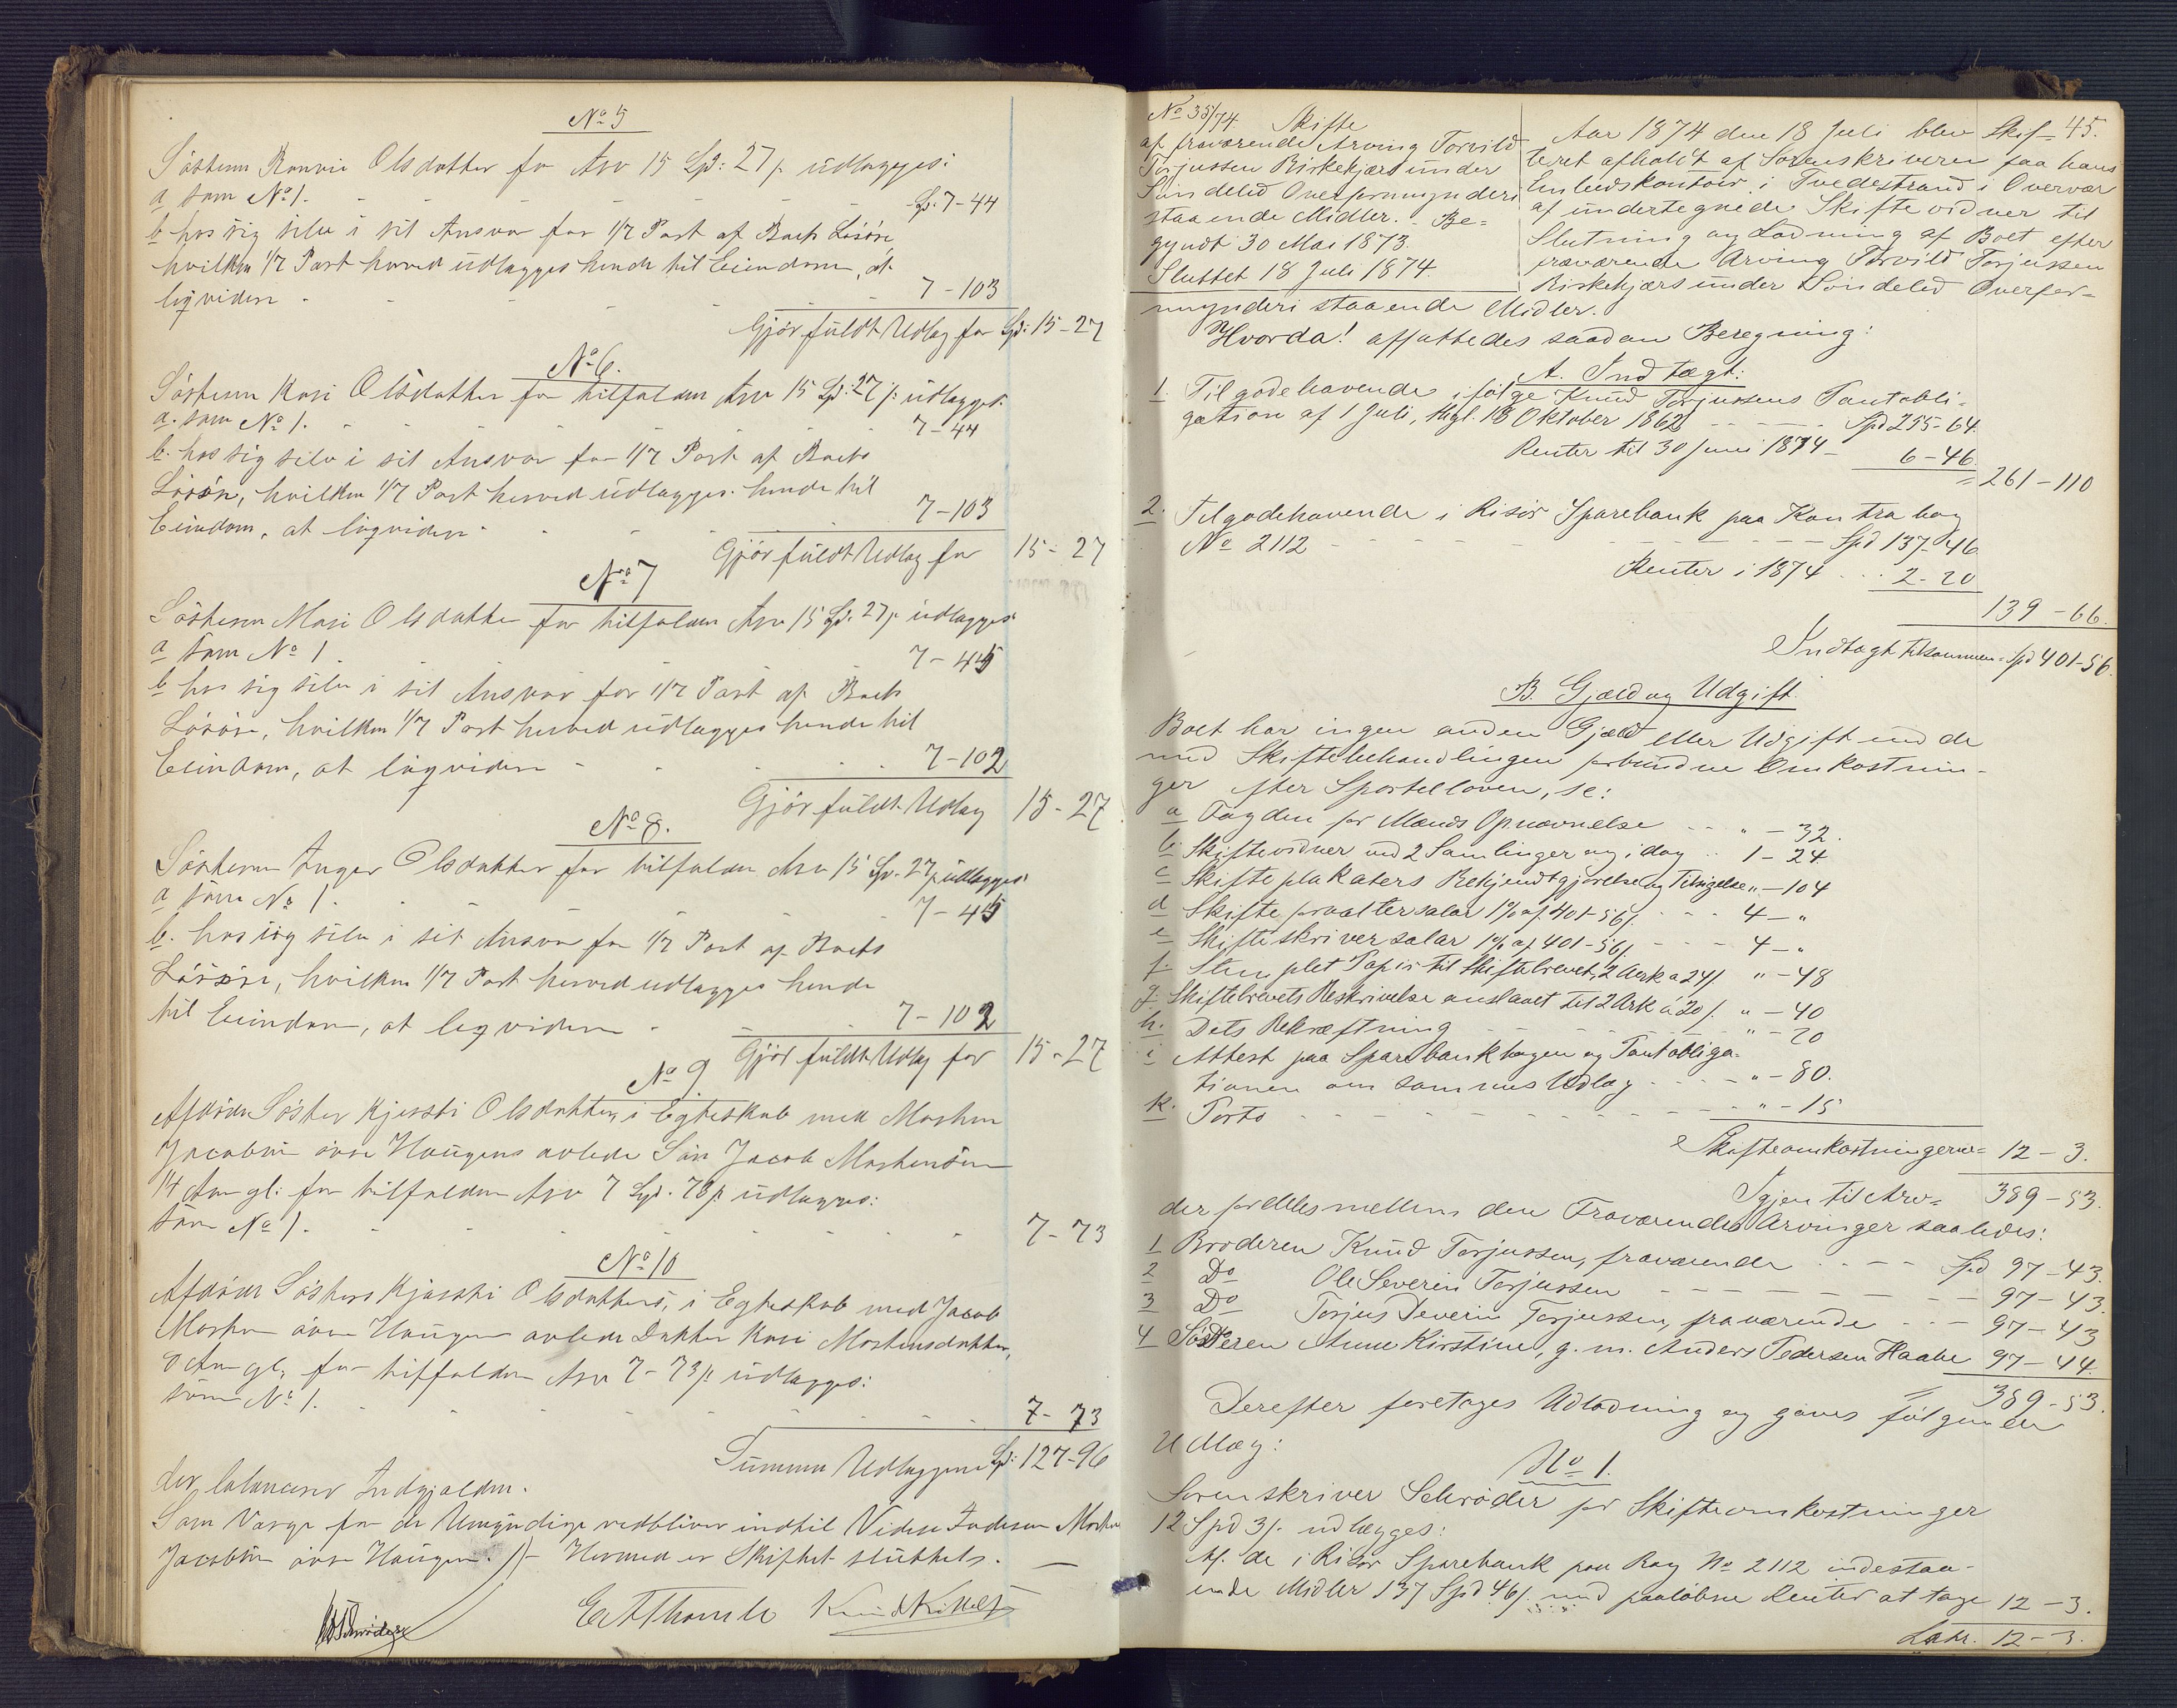 No 5
Søsteren Ranvei Olsdatter for Arv 15 Spd: 27 s. udlægges:
a som No 1. - - - - Sp. 7-44
b hos sig selv i sit Ansvar for 1/7 Part af Boets Løsøre,
hvilken 1/7 Part herved udlægges hende til Eiendom, at
liqvidere - - - - 7-103
Gjør fuldt Udlæg for Sp: 15-27
No 6.
Søsteren Kari Olsdatter for tilfalden Arv 15 Sp: 27 s. udlægges:
a. som No 1. - - - - 7-44
b. hos sig selv i sit Ansvar for 1/7 Part af Boets
Løsøre, hvilken 1/7 Part herved udlægges hende til
Eiendom, at liqvidere - - - 7-103
Gjør fuldt Udlæg for 15-27
No 7
Søsteren Mari Olsdatter for tilfalden Arv 15 Sp. 27 s. udlægges
a som No 1 - 7-45
b hos sig selv i sit Ansvar for 1/7 Part af Boets
Løsøre, hvilken 1/7 Part herved udlægges hende til
Eiendom, at liqvidere - - - 7-102
Gjør fuldt Udlæg 15-27
No 8.
Søsteren Inger Olsdatter for tilfalden Arv 15 Sp. 27 s. udlægges
a som No 1. - - - 7-45
b. hos sig selv i sit Ansvar for 1/7 Part af Boets
Løsøre, hvilken 1/7 Part herved udlægges hende
til Eiendom, at liqvidere - - - 7-102
Gjør fuldt Udlæg for 15-27
No 9.
Afdøde Søster Kjersti Olsdatters, i Egteskab med Morten
Jacobsen øvre Haugens avlede Søn Jacob Mortensen
14 Aar gl: for tilfalden Arv 7 Spd. 73 s. udlægges:
som No 1. - - - - 7-73
No 10
Afdøde Søsters Kjersti Olsdatters, i Egteskab med Jacob
Morten øvre Haugen avlede Datter Kari Mortensdatter,
8 Aar gl, for tilfalden Arv 7-73 s. udlægges:
som No 1. - - - - 7-73
Summa Udlæggene Sp: 127-96
der balancerer Indgjælden.
Som Værge for de Umyndige vedbliver indtil Videre Faderen Morten
Jacobsen øvre Haugen. // Hermed er Skiftet sluttet. —
Schrøder Knud Kittelsen
No 35/74. Skifte
af fraværende Arving Torvild
Torjussen Birkekjærs under
Søndeled Overformynderi
staaende Midler. - Be-
gyndt 30 Mai 1873.
Sluttet 18 Juli 1874.
Aar 1874 den 18 Juli blev Skif- 45.
teret afholdt af Sorenskriveren paa hans
Embedskontoir i Tvedestrand i Overvær
af undertegnede Skiftevidner til
Slutning og Lodning af Boet efter
fraværende Arving Torvild Torjussen
Birkekjærs under Søndeled Overfor-
mynderi staaende Midler.
Hvorda! affattedes saadan Beregning:
A. Indtægt:
1. Tilgodehavende ifølge Knud Torjussens Pantobli-
gation af 1 Juli, thgl. 18 Oktober 1862 - - - Spd 255-64.
Renter til 30 Juni 1874 - 6-46.
= 261-110
2. Tilgodehavende i Risør Sparebank paa Kontrabog
No 2112 - - - - Spd 137-46
Renter i 1874 . . . 2-20
139-66.
Indtægt tilsammen = Spd 401-56.
B. Gjæld og Udgift.
Boet har ingen anden Gjæld eller Udgift end de
med Skiftebehandlingen forbundne Omkostnin-
ger efter Sportelloven, se:
a Fogden for Mænds Opnævnelse - - " - 32.
b. Skiftevidner ved 2 Samlinger og idag .. 1-24
c Skifteplakaters Bekjendtgjørelse og Tilsigelse " - 104
d Skifteforvaltersalær 1% af 401-56 s. - - - 4-"
e Skifteskriversalær 1% af 401-56 s. - - - 4-"
f Stemplet Papir til Skiftebrevet, 2 Ark a 24 s. " - 48
g. Skiftebrevets Beskrivelse anslaaet til 2 Ark á 20 s. " - 40
h. Dets Bekræftning - - - " - 20
i Attest paa Sparebankbogen og Pantobliga-
tionen om sammes Udlæg - - - " - 80.
k. Porto - - - - " - 15
Skifteomkostningerne = 12-3.
Igjen til Arv = 389-53.
der fordeles mellem den Fraværendes Arvinger saaledes:
1 Broderen Knud Torjussen, fraværende - - - Spd 97-43.
2 Do Ole Severin Torjussen - - - - 97-43.
3 Do Torjus Severin Torjussen, fraværende - - 97-43
4 Søsteren Anne Kirstine, g. m. Anders Pedersen Haabe 97-44.
= 389-53.
Derefter foretages Udlodning og gives følgende
Udlæg:
No 1.
Sorenskriver Schrøder for Skifteomkostninger
12 Spd 3 s. udlægges:
Af de i Risør Sparebank paa Bog No 2112 indestaa-
ende Midler 137 Spd 46 s. med paaløbne Renter at tage 12-3.
Latr. 12-3.